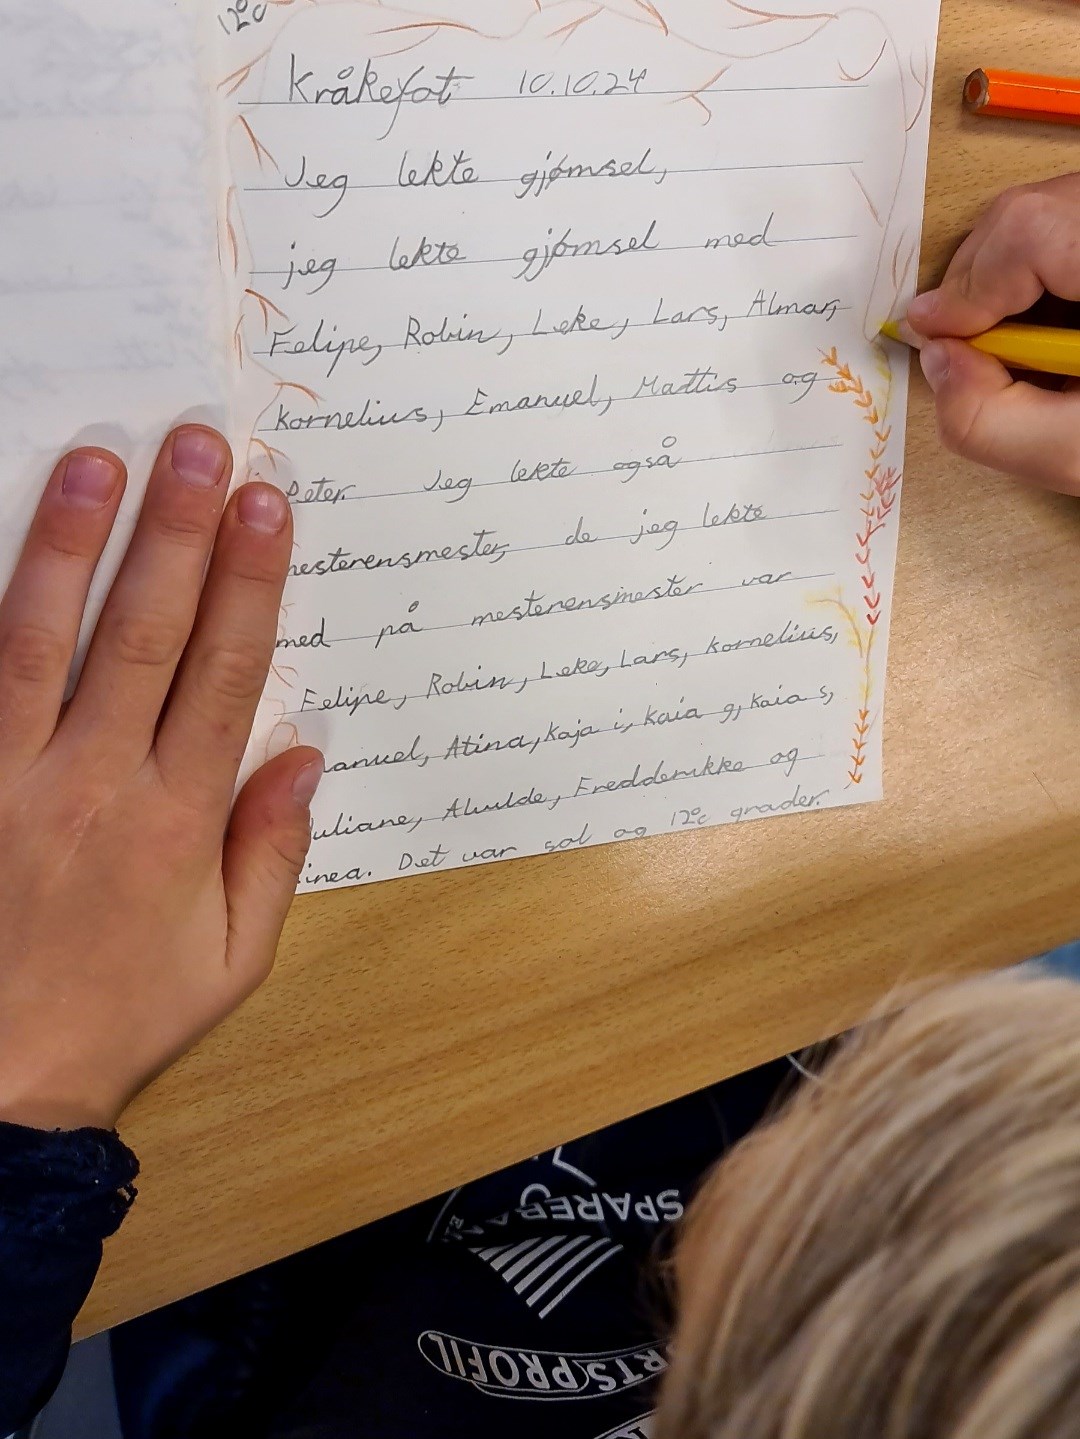 12°c
Kråkefot 10.10.24
Jeg lekte gjømsel,
jeg lekte gjømsel med
Felipe, Robin, Leke, Lars, Almar,
Kornelius, Emanuel, Mattis og
Peter. Jeg lekte også
mesterensmester, de jeg lekte
med på mesterensmester var
Felipe, Robin, Leke, Lars, Kornelius,
manuel, Atina, Kaja i, Kaia g, Kaia s,
uliane, Alvilde, Fredderikke og
inea. Det var sol og 12°c grader.
SPAREBA
RTSPROFIL